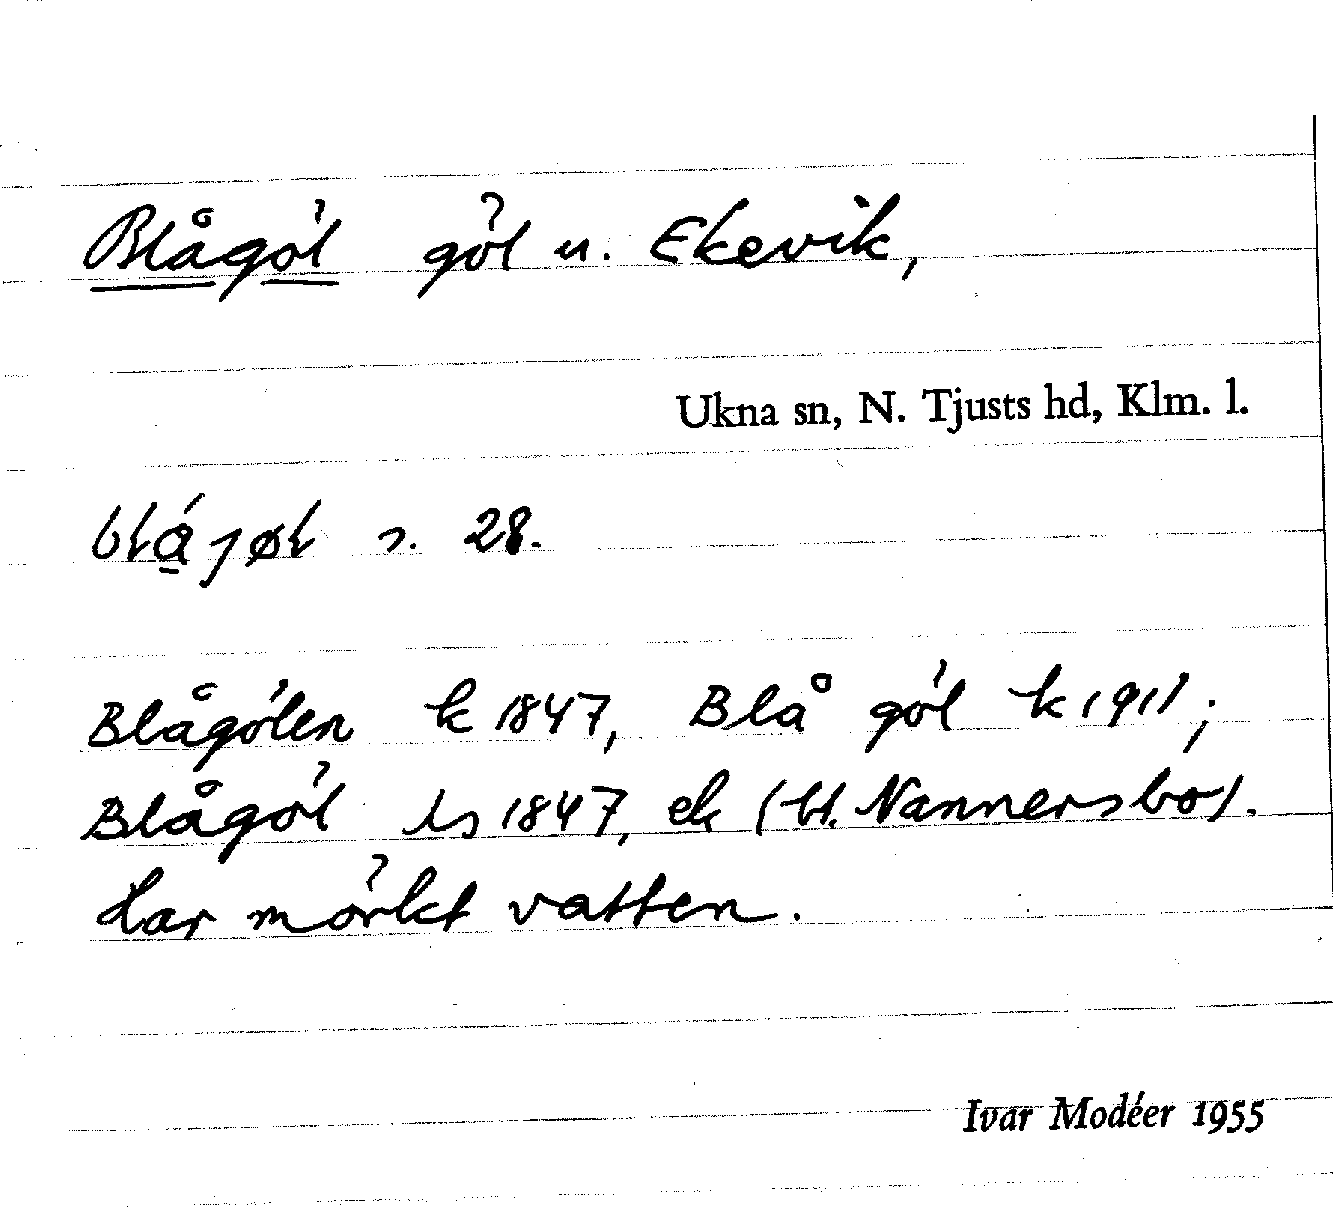 Blågöl göl u. Ekevik,
Ukna sn, N. Tjusts hd, Klm. l.
s. 28.
Blågölen k 1847, Blå göl k 1911;
Blågöl ls 1847, ek (bl. Nannersbo).
Har mörkt vatten.
Ivar Modéer 1955